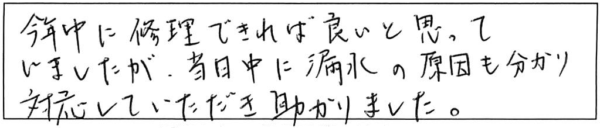 今年中に修理できれば良いと思って
いましたが、当日中に漏水の原因も分かり
対応していただき助かりました。